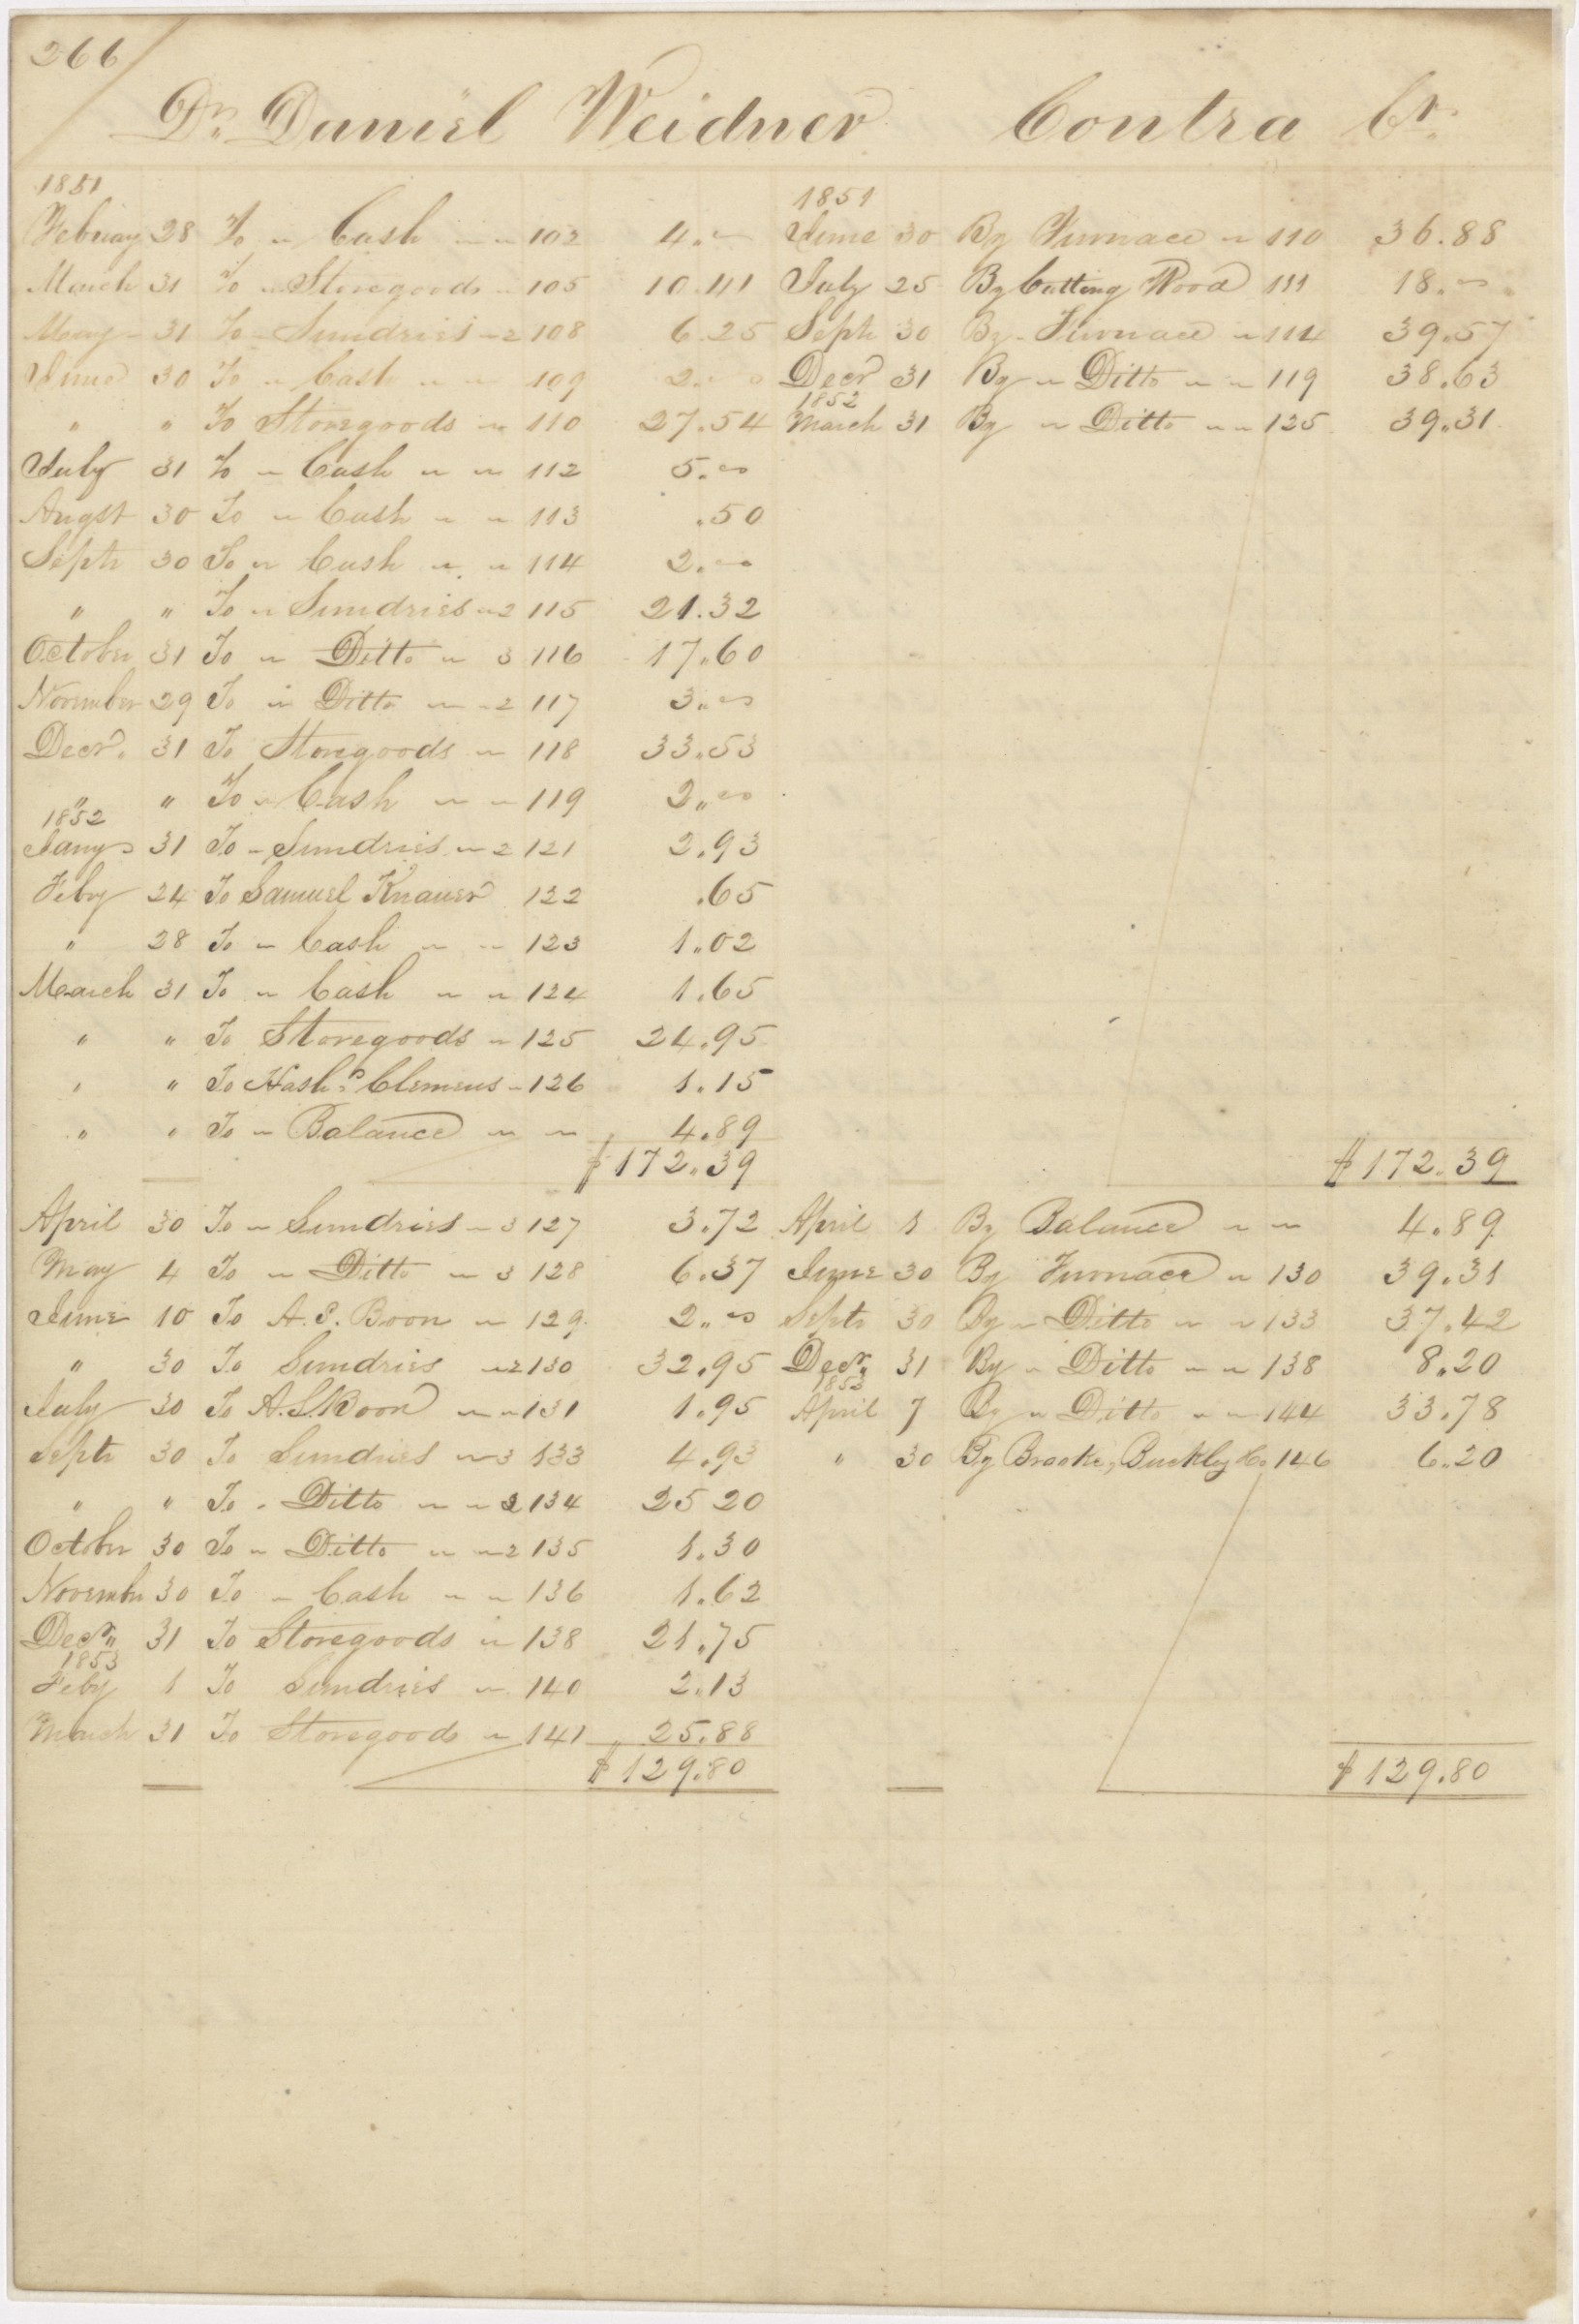 266
Dr. Daniel Weidner Contra Cr.
1851 1851
Februay 28 To " Cash " " 102 4.00 June 30 By Furnace " 110 36.88
March 31 To " Storegoods " 105 10.41 July 25 By Cutting Wood 111 18.00
May 31 To Sundries " 2 108 6.25 Sept 30 By Furnace " 114 39.57
June 30 To " Cash " " 109 2.00 Decr 31 By " Ditto " " 119 38.63
1852
" " To Storegoods " 110 27.54 March 31 By " Ditto " " 125 39.31
July 31 To " Cash " " 112 5.00
Augst 30 To " Cash " " 113 .50
Septr 30 To " Cash " " 114 2.00
" " To " Sundries " 2 115 21.32
October 31 To " Ditto " 3 116 17.60
November 29 To " Ditto " 2 117 3.00
Decr. 31 To Storegoods " 118 33.53
" " To " Cash " " 119 2.00
1852
Jany 31 To Sundries " 2 121 2.93
Feby 24 To Samuel Knauer 122 .65
" 28 To " Cash " " 123 1.02
March 31 To " Cash " " 124 1.65
" " To Storegoods " 125 24.95
" " To Nashs Clemens " 126 1.15
" " To " Balance " " 4.89
$172.39 $172.39
April 30 To " Sundries " 3 127 3.72 April 1 By Balance " " 4.89
May 4 To " Ditto " 3 128 6.37 June 30 By Furnace " 130 39.31
June 10 To A. S. Boon " 129 2.00 Septr 30 By " Ditto " " 133 37.42
" 30 To Sundries " 2 130 32.95 Decr. 31 By " Ditto " " 138 8.20
1853
July 30 To A. S. Boon " " 131 1.95 April 7 By " Ditto " " 144 33.78
Septr 30 To Sundries " 3 133 4.93 " 30 By Brooke, Buckley & Co 146 6.20
" " To " Ditto " " 2 134 25 20
October 30 To " Ditto " " 2 135 1.30
Novembr 30 To " Cash " " 136 1.62
Decr. 31 To Storegoods " 138 21.75
1853
Feby 1 To Sundries " 140 2.13
March 31 To Storegoods " 141 25.88
$129.80 $129.80